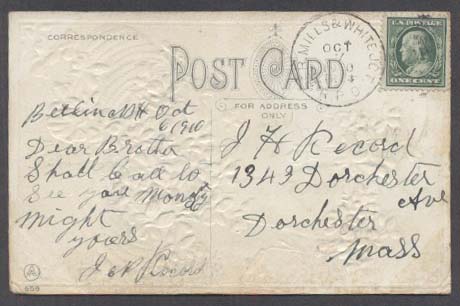 CORRESPONDENCE
POST CARD
FOR ADDRESS
ONLY
MILLS & WHITE JCT
OCT
R.P.O.
U.S. POSTAGE
ONE CENT
NH Oct
6 1910
Dear Brother
Shall be at to
See you Monday
Might
yours
J H Record
1343 Dorchester
Ave
Dorchester
Mass
J & N Record
A
656